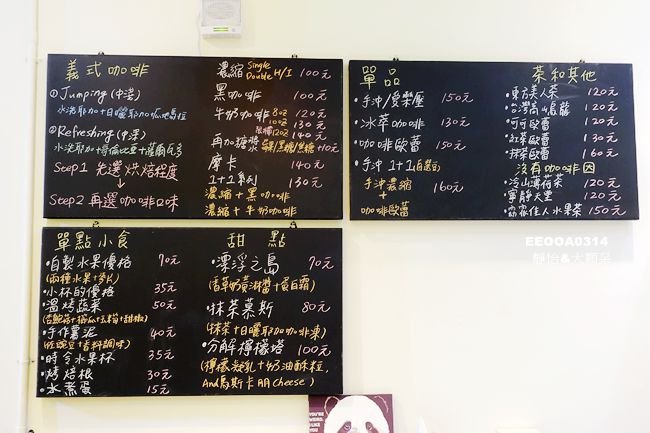 義式咖啡
①Jumping(中淺)
水洗耶加+日曬耶加
②Refreshing(中深)
水洗耶加+哥倫比亞+薩爾瓦多
Step1 先選烘焙程度
↓
Step2 再選咖啡口味
濃縮 Single Double H/I 100元
黑咖啡 100元
牛奶咖啡 8oz 120元
10oz 130元
12oz 140元
再加糖漿 +10元
摩卡 140元
1+1系列 130元
濃縮+黑咖啡
濃縮+牛奶咖啡
單品
•手沖/愛樂壓 150元
•冰萃咖啡 130元
•咖啡歐蕾 150元
•手沖1+1
手沖濃縮
+ 160元
咖啡歐蕾
茶和其他
•東方美人茶 120元
•台灣高山烏龍 120元
•可可歐蕾 120元
•紅茶歐蕾 130元
•抹茶歐蕾 160元
沒有咖啡因
•冷山薄荷茶 120元
•寧靜大里 120元
•窈窕佳人水果茶 150元
單點小食
•自製水果優格 70元
(兩種水果+麥片)
•小杯的優格 35元
•溫烤蔬菜 50元
•手作薯泥 40元
•時令水果杯 35元
•烤焙根 30元
•水煮蛋 15元
甜點
•漂浮之島 70元
(香草奶黃淋醬+蛋白霜)
•抹茶慕斯 80元
(抹茶+日曬耶加咖啡凍)
•分解檸檬塔 100元
(檸檬凝乳+奶油酥粒,
And馬斯卡朋cheese)
EEOOA0314
靜怡&大顆呆
YOU'RE
WEIRD.
I LIKE
YOU